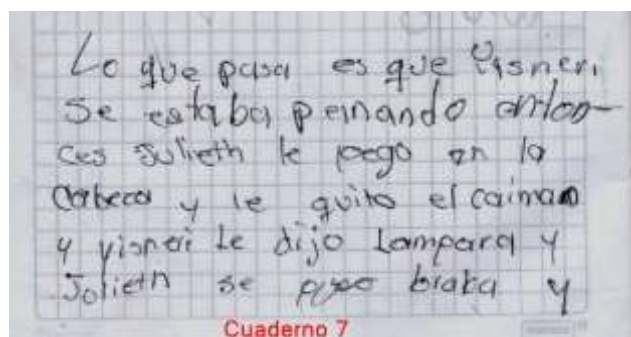 Lo que pasa es que Yisneri
se estaba peinando enton-
ces Julieth le pego en la
cabeza y le quito el caiman
y yisneri le dijo Lampara y
Julieth se puso braba y
Cuaderno 7